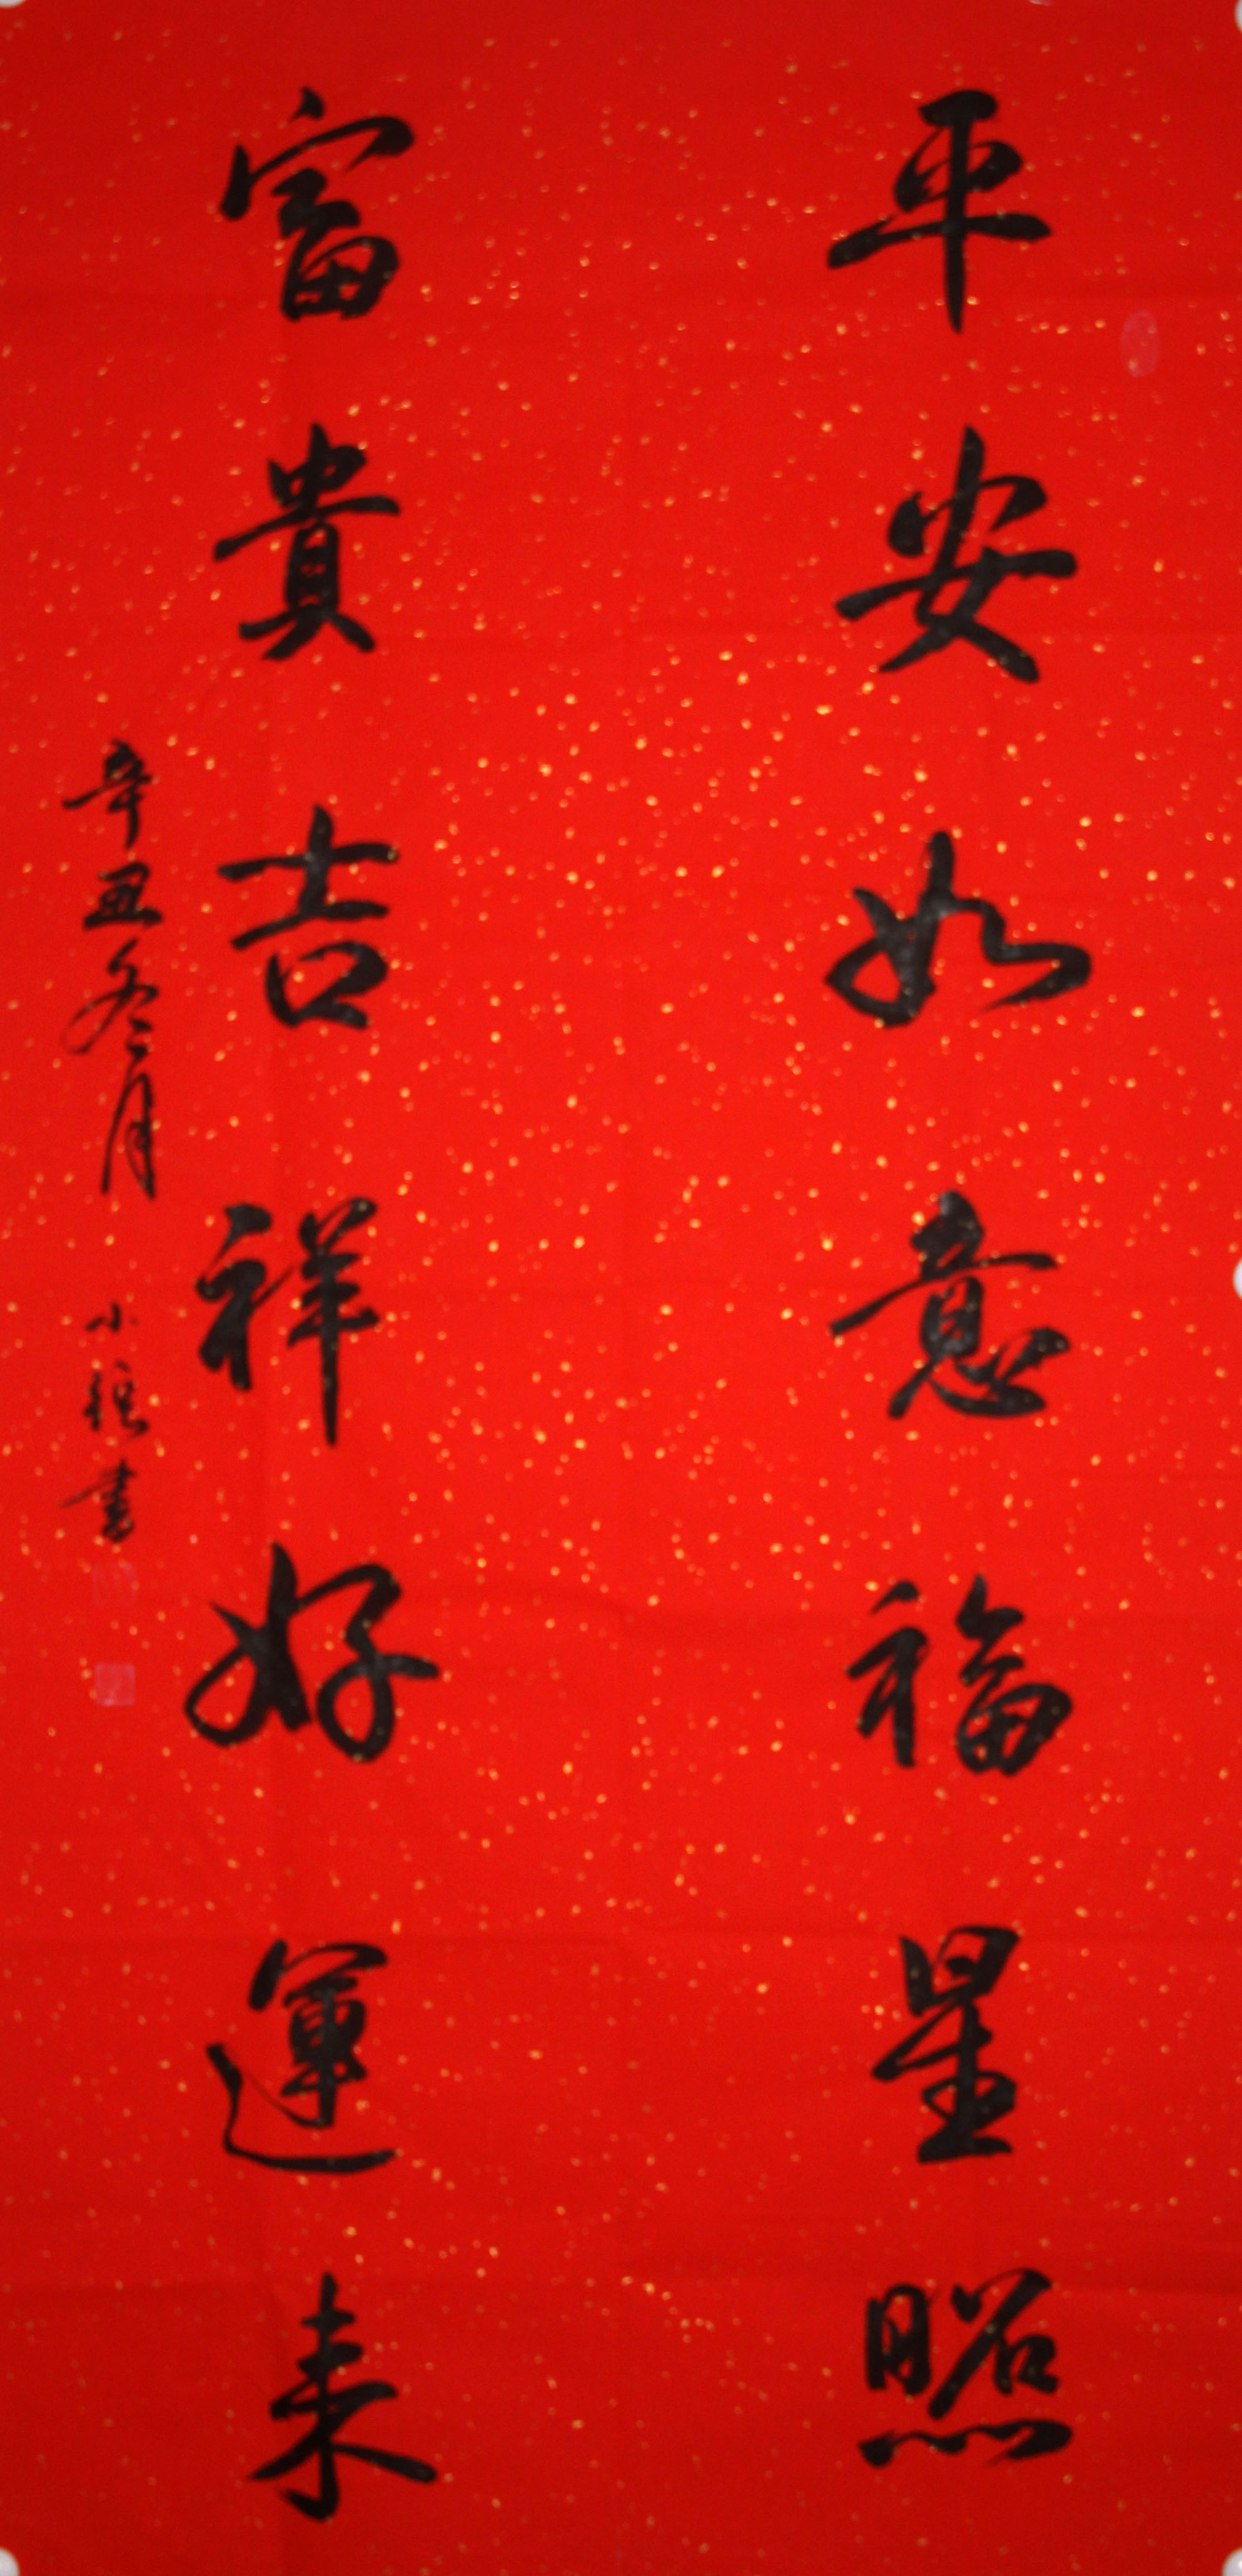 平安如意福星照
富貴吉祥好運来
辛丑冬月
小強書